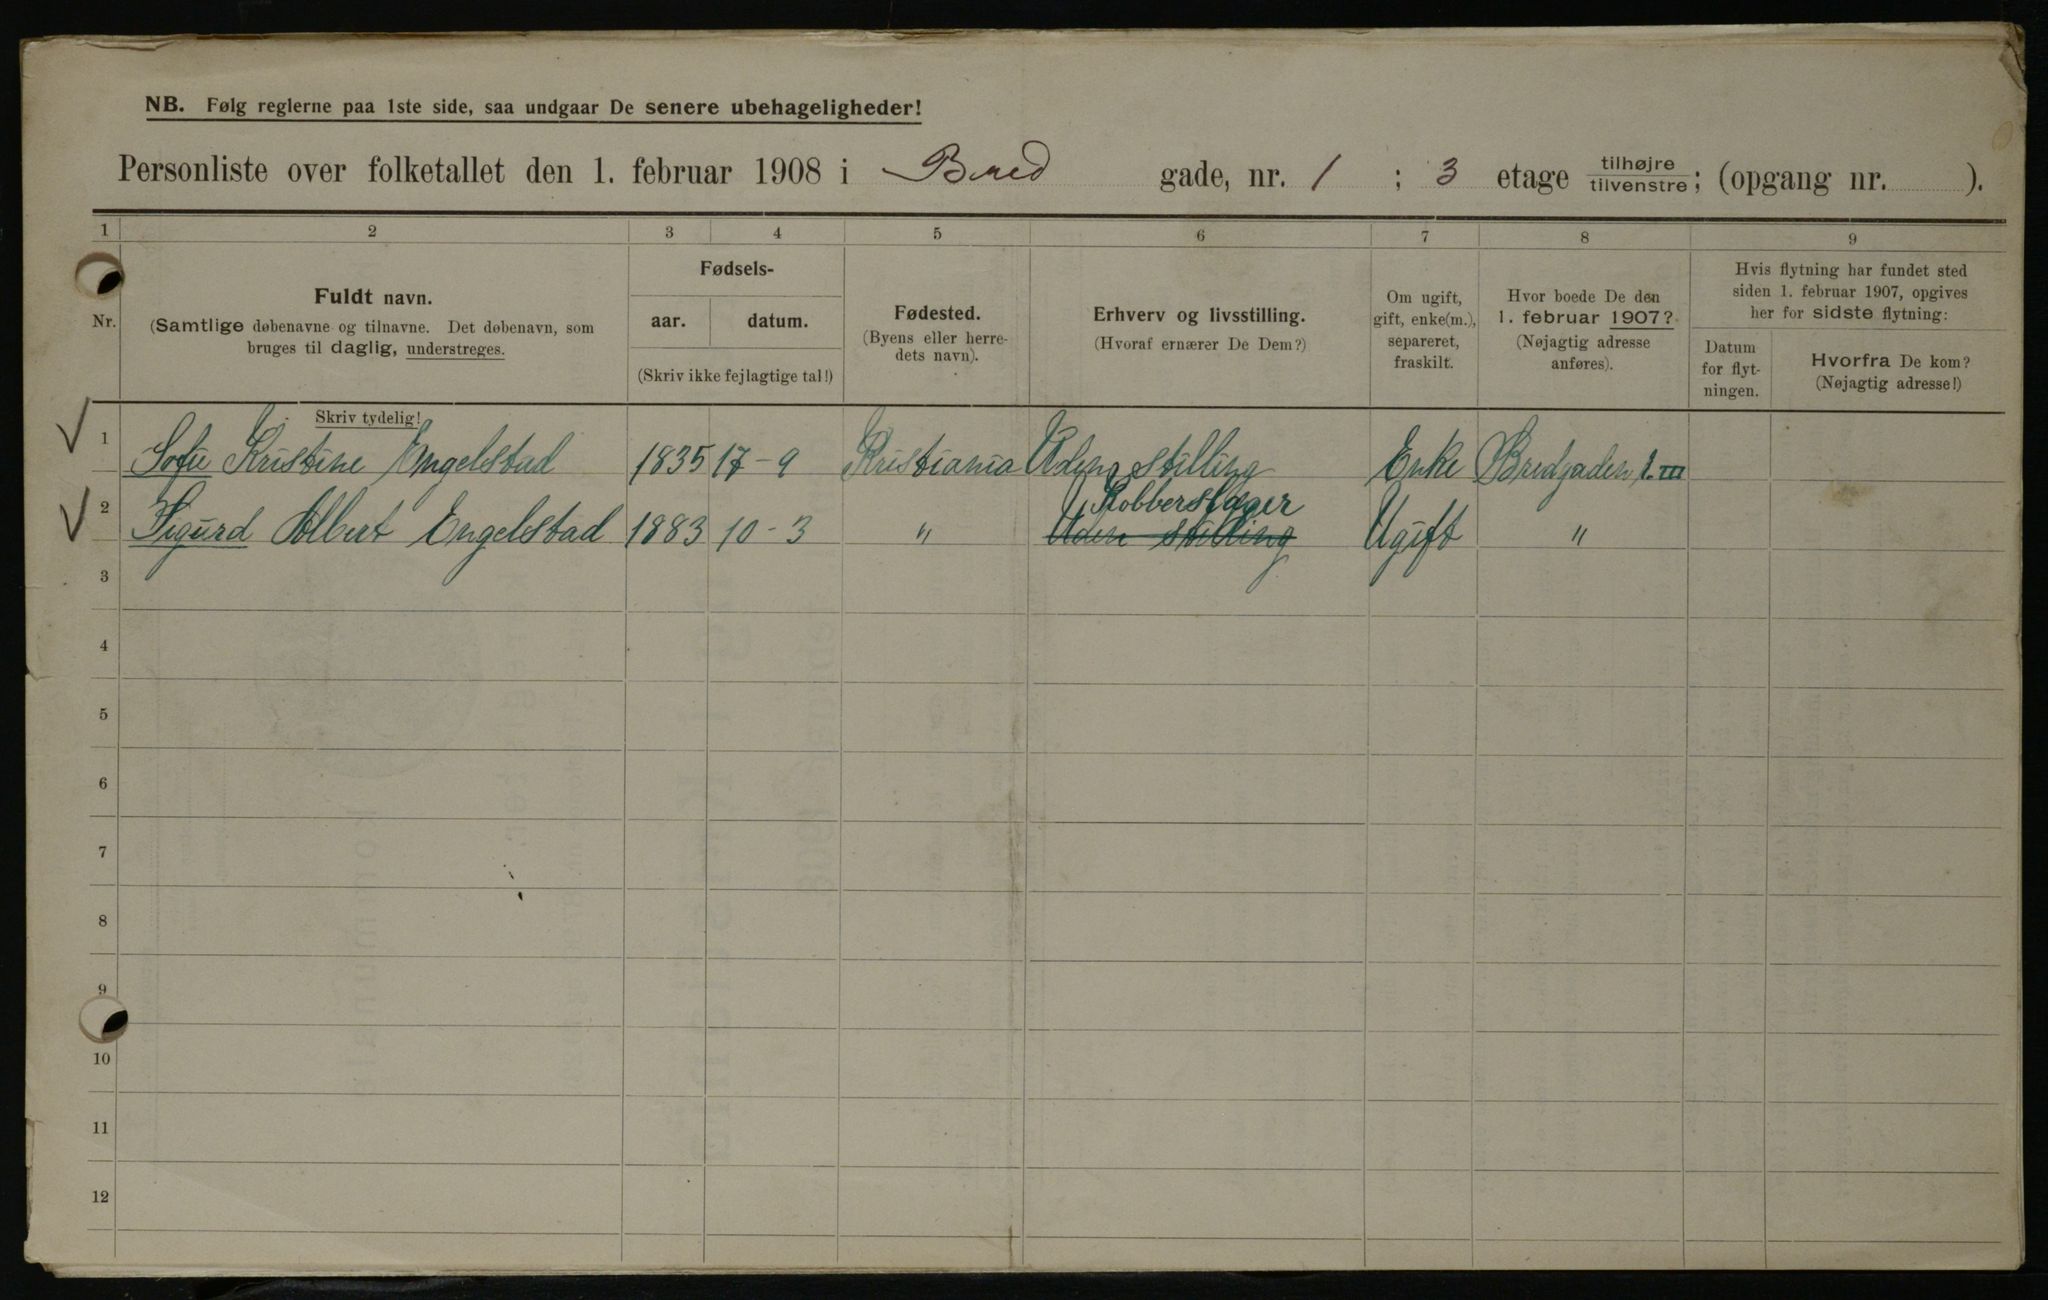 NB. Følg reglerne paa 1ste side, saa undgaar De senere ubehageligheder!
Personliste over folketallet den 1. februar 1908 i Bred gade, nr. 1 ; 3 etage tilhøjre tilvenstre; (opgang nr. ).
1 2 3 4 5 6 7 8 9
Nr.
Fuldt navn.
(Samtlige døbenavne og tilnavne. Det døbenavn, som
bruges til daglig, understreges.
Fødsels-
aar. datum.
(Skriv ikke fejlagtige tal!)
Fødested.
(Byens eller herre-
dets navn).
Erhverv og livsstilling.
(Hvoraf ernærer De Dem?)
Om ugift,
gift, enke(m.),
separeret,
fraskilt.
Hvor boede De den
1. februar 1907?
(Nøjagtig adresse
anføres).
Hvis flytning har fundet sted
siden 1. februar 1907, opgives
her for sidste flytning:
Datum
for flyt-
ningen.
Hvorfra De kom?
(Nøjagtig adresse!)
Skriv tydelig!
1 Sofie Kristine Engelstad 1835 17-9 Kristiania Uden stilling Enke Bredgaden 1. III
Kobberslager
2 Sigurd Albert Engelstad 1883 10-3 " Uden stilling Ugift "
3
4
5
6
7
8
9
10
11
12